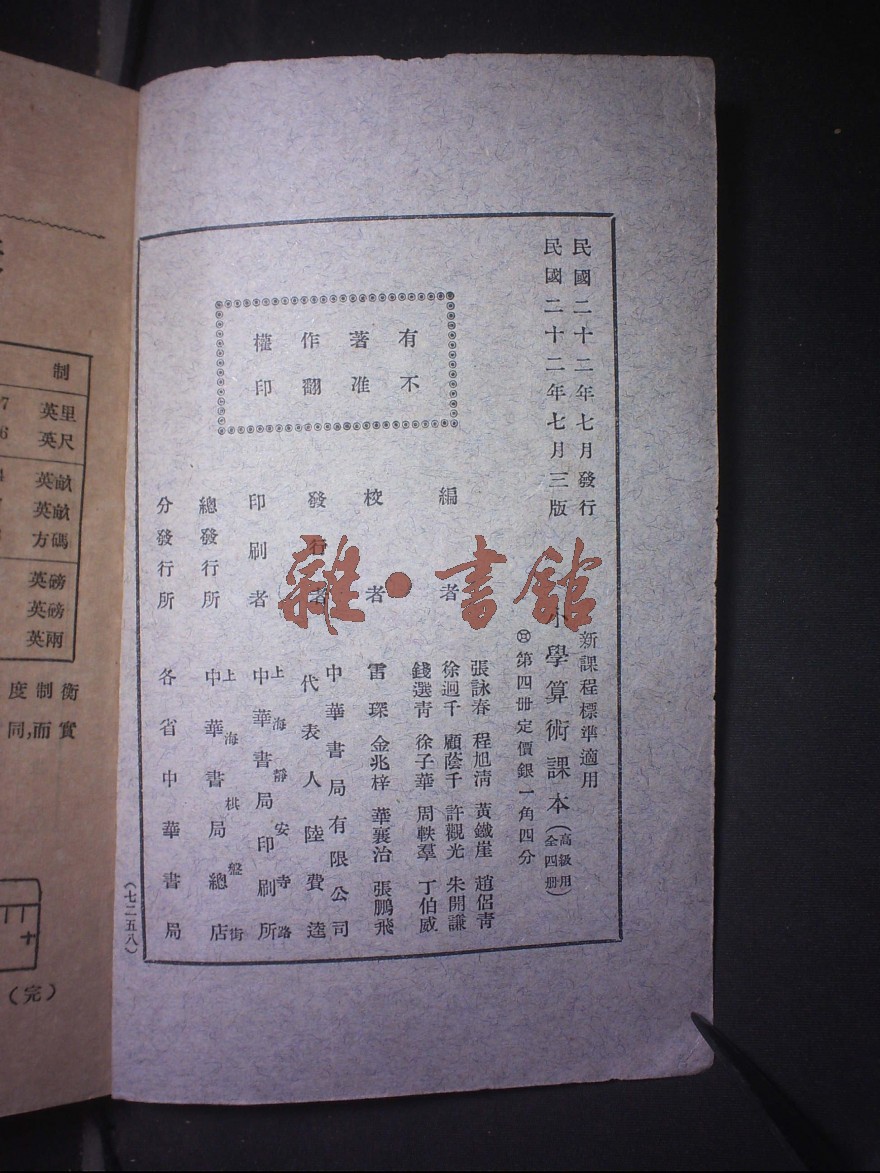 民國二十二年七月發行
民國二十二年七月三版
新課程標準適用
小學算術課本(高級用全四册)
第四册定價銀一角四分
有著作權
不准翻印
編者
張詠春 程旭清 黃鐵崖 趙侶青
徐迥千 顧蔭千 許觀光 朱開謙
錢選青 徐子華 周軼羣 丁伯威
校者
雷琛 金兆梓 華襄治 張鵬飛
發行者
中華書局有限公司
代表人 陸費逵
印刷者
上海靜安寺路
中華書局印刷所
總發行所
上海棋盤街
中華書局總店
分發行所
各省中華書局
(七二五八)
雜·書館
制
英里
英尺
英畝
英畝
方碼
英磅
英磅
英兩
衡制度
實而,同
(完)